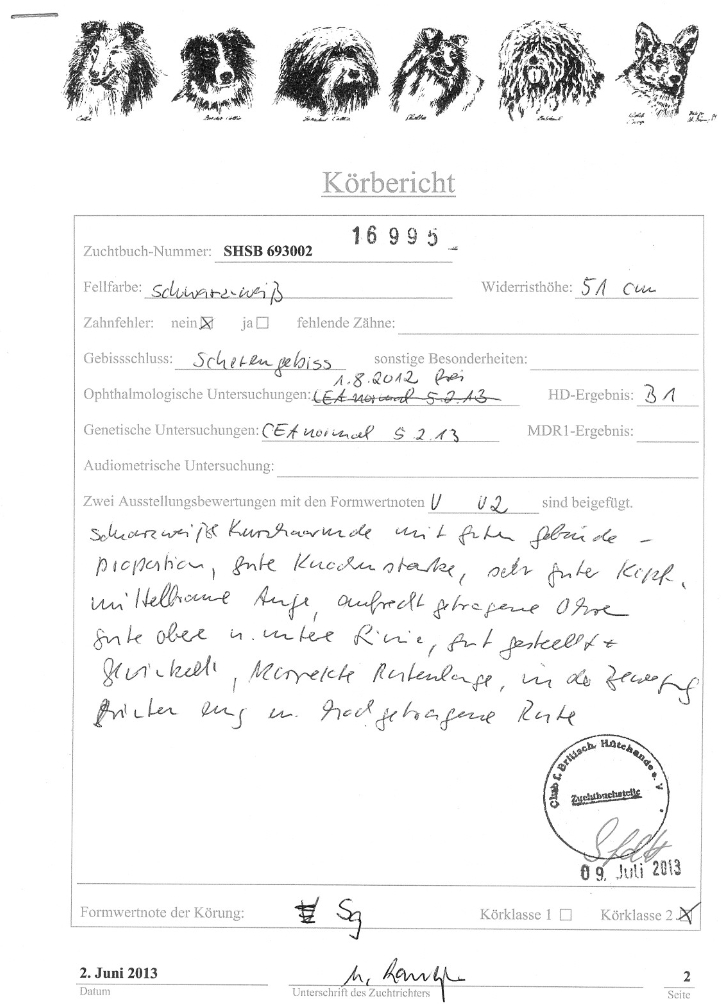 Collie Border Collie Bearded Collie Sheltie Bobtail Welsh Corgi
Körbericht
16995
Zuchtbuch-Nummer: SHSB 693002
Fellfarbe: schwarz-weiß Widerristhöhe: 51 cm
Zahnfehler: nein ☒ ja ☐ fehlende Zähne:
Gebissschluss: Scherengebiss sonstige Besonderheiten:
1.8.2012 frei
Ophthalmologische Untersuchungen: CEA normal 5.2.13 HD-Ergebnis: B1
Genetische Untersuchungen: CEA normal 5.2.13 MDR1-Ergebnis:
Audiometrische Untersuchung:
Zwei Ausstellungsbewertungen mit den Formwertnoten V V2 sind beigefügt.
schwarzweiße Kurzhaar mit guten gebäude-
proportion, gute Knochenstärke, sehr guter Kopf,
mittelbraune Auge, aufrecht getragene Ohren
gute obere u. untere Linie, gut gestellt +
gewinkelt, korrekte Rutenlänge, in der Bewegung
hinten eng u. hochgetragene Rute
Club f. Britisch. Hütehunde e. V.
Zuchtbuchstelle
09. Juli 2013
Formwertnote der Körung: Sg Körklasse 1 ☐ Körklasse 2 ☒
2. Juni 2013 2
Datum Unterschrift des Zuchtrichters Seite